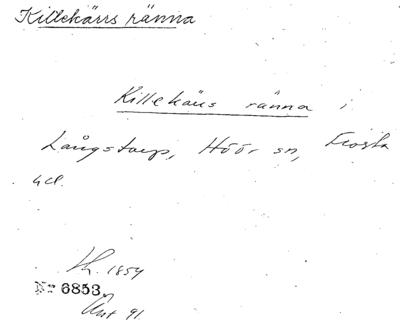 Killekärrs ränna
Killekärrs ränna i
Långstorp, Höör sn, Frosta
hd.
1854
No 6853
Ant 91